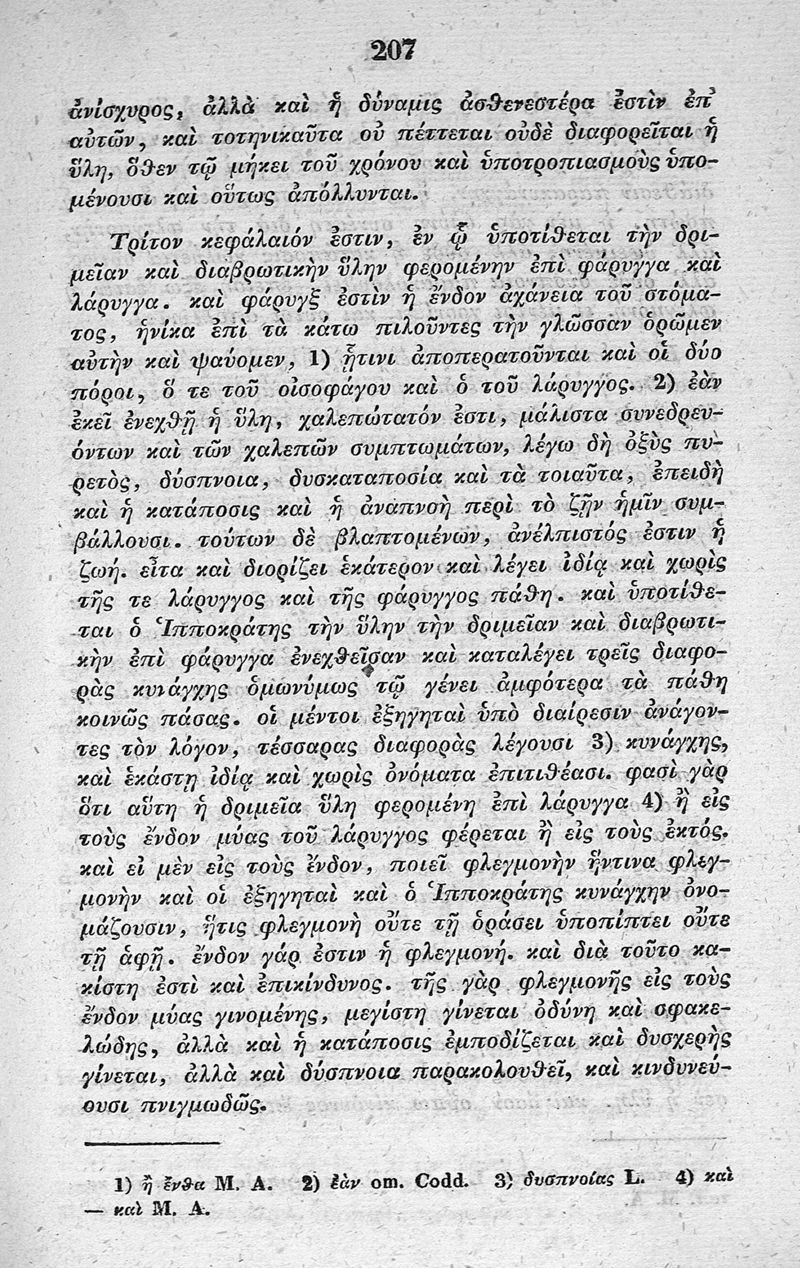 207
ἀνίσχυρος, ἀλλὰ καὶ ἡ δύναμις ἀσθενεστέρα ἐστὶν ἐπ᾽
αὐτῶν, καὶ τοτηνικαῦτα οὐ πέττεται οὐδὲ διαφορεῖται ἡ
ὕλη, ὅθεν τῷ μήκει τοῦ χρόνου καὶ ὑποτροπιασμοὺς ὑπο-
μένουσι καὶ οὕτως ἀπόλλυνται.
Τρίτον κεφάλαιόν ἐστιν, ἐν ᾧ ὑποτίθεται τὴν δρι-
μεῖαν καὶ διαβρωτικὴν ὕλην φερομένην ἐπὶ φάρυγγα καὶ
λάρυγγα. καὶ φάρυγξ ἐστὶν ἡ ἔνδον ἀχάνεια τοῦ στόμα-
τος, ἡνίκα ἐπὶ τὰ κάτω πιλοῦντες τὴν γλῶσσαν ὁρῶμεν
αὐτὴν καὶ ψαύομεν, 1) ᾗτινι ἀποπερατοῦνται καὶ οἱ δύο
πόροι, ὅ τε τοῦ οἰσοφάγου καὶ ὁ τοῦ λάρυγγος. 2) ἐὰν
ἐκεῖ ἐνεχθῇ ἡ ὕλη, χαλεπώτατόν ἐστι, μάλιστα συνεδρευ-
όντων καὶ τῶν χαλεπῶν συμπτωμάτων, λέγω δὴ ὀξὺς πυ-
ρετὸς, δύσπνοια, δυσκαταποσία καὶ τὰ τοιαῦτα, ἐπειδὴ
καὶ ἡ κατάποσις καὶ ἡ ἀναπνοὴ περὶ τὸ ζῆν ἡμῖν συμ-
βάλλουσι. τούτων δὲ βλαπτομένων, ἀνέλπιστός ἐστιν ἡ
ζωή. εἶτα καὶ διορίζει ἑκάτερον καὶ λέγει ἰδίᾳ καὶ χωρὶς
τῆς τε λάρυγγος καὶ τῆς φάρυγγος πάθη. καὶ ὑποτίθε-
ται ὁ Ἱπποκράτης τὴν ὕλην τὴν δριμεῖαν καὶ διαβρωτι-
κὴν ἐπὶ φάρυγγα ἐνεχθεῖσαν καὶ καταλέγει τρεῖς διαφο-
ρὰς κυνάγχης ὁμωνύμως τῷ γένει ἀμφότερα τὰ πάθη
κοινῶς πάσας. οἱ μέντοι ἐξηγηταὶ ὑπὸ διαίρεσιν ἀνάγον-
τες τὸν λόγον, τέσσαρας διαφορὰς λέγουσι 3) κυνάγχης,
καὶ ἑκάστῃ ἰδίᾳ καὶ χωρὶς ὀνόματα ἐπιτιθέασι. φασὶ γὰρ
ὅτι αὕτη ἡ δριμεῖα ὕλη φερομένη ἐπὶ λάρυγγα 4) ἢ εἰς
τοὺς ἔνδον μύας τοῦ λάρυγγος φέρεται ἢ εἰς τοὺς ἐκτός.
καὶ εἰ μὲν εἰς τοὺς ἔνδον, ποιεῖ φλεγμονὴν ἥντινα φλεγ-
μονὴν καὶ οἱ ἐξηγηταὶ καὶ ὁ Ἱπποκράτης κυνάγχην ὀνο-
μάζουσιν, ἥτις φλεγμονὴ οὔτε τῇ ὁράσει ὑποπίπτει οὔτε
τῇ ἁφῇ. ἔνδον γάρ ἐστιν ἡ φλεγμονή. καὶ διὰ τοῦτο κα-
κίστη ἐστὶ καὶ ἐπικίνδυνος. τῆς γὰρ φλεγμονῆς εἰς τοὺς
ἔνδον μύας γινομένης, μεγίστη γίνεται ὀδύνη καὶ σφακε-
λώδης, ἀλλὰ καὶ ἡ κατάποσις ἐμποδίζεται καὶ δυσχερὴς
γίνεται, ἀλλὰ καὶ δύσπνοια παρακολουθεῖ, καὶ κινδυνεύ-
ουσι πνιγμωδῶς.
1) ἢ ἔνθα M. A. 2) ἐὰν om. Codd. 3) δυσπνοίας L. 4) καὶ
— καὶ M. A.